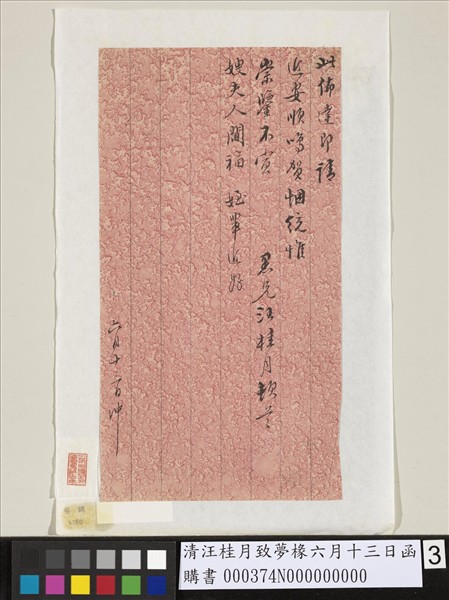 此佈達即請
近安順鳴賀悃統惟
崇鑒不宣
愚兄汪桂月頓首
嫂夫人閫福 姪輩近好
六月十三日沖
清汪桂月致夢椽六月十三日函
購書 000374N000000000
3